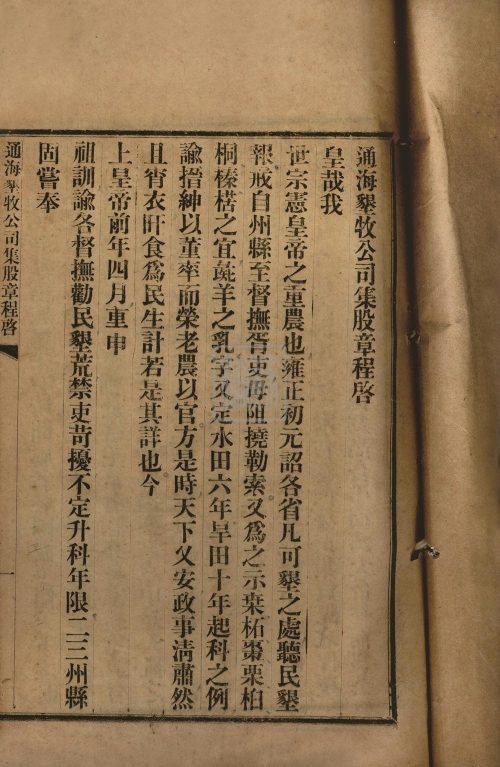 通海墾牧公司集股章程啓
皇哉我
世宗憲皇帝之重農也雍正初元詔各省凡可墾之處聽民墾
報戒自州縣至督撫胥吏毋阻撓勒索又爲之示桑柘棗栗柏
桐榛楛之宜彘羊之乳字又定水田六年旱田十年起科之例
諭搢紳以董率而榮老農以官方是時天下乂安政事淸肅然
且宵衣旰食爲民生計若是其詳也今
上皇帝前年四月重申
祖訓諭各督撫勸民墾荒禁吏苛擾不定升科年限二三州縣
固嘗奉
通海墾牧公司集股章程啓
一